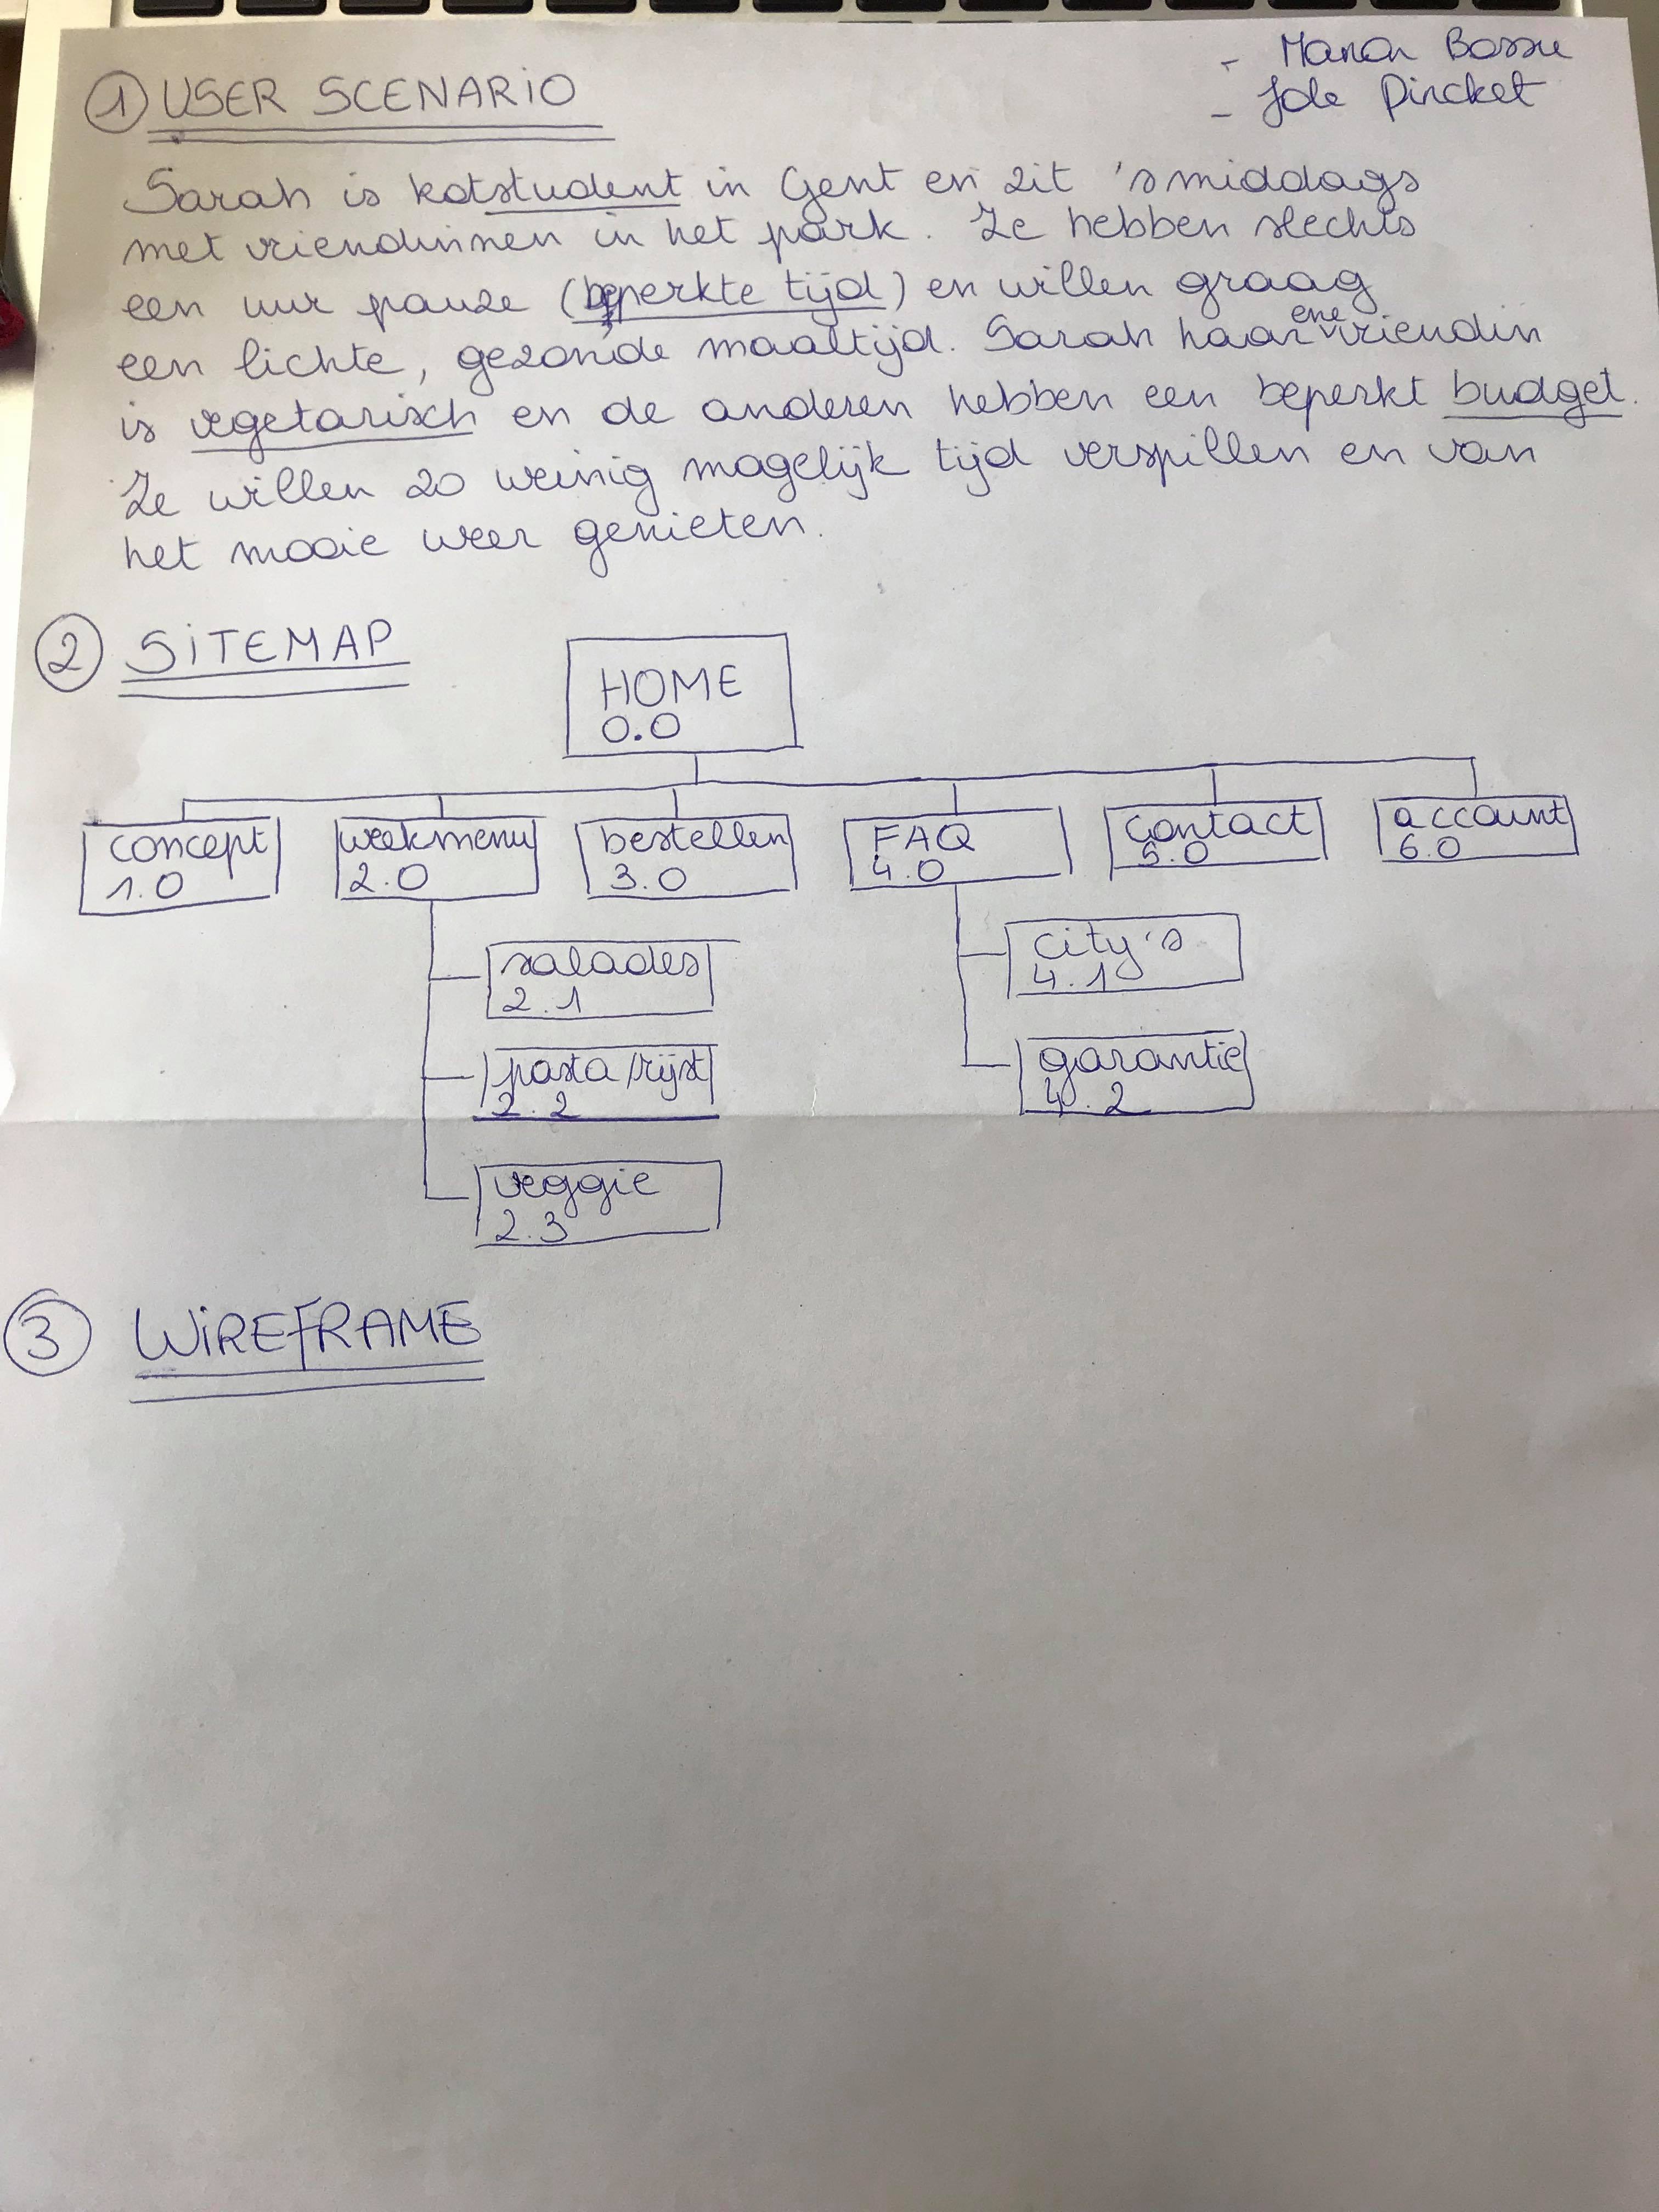 - Manon Bossu
- Jole Pincket
① USER SCENARIO
Sarah is kotstudent in Gent en zit 's middags
met vriendinnen in het park. Ze hebben slechts
een uur pauze (beperkte tijd) en willen graag
een lichte, gezonde maaltijd. Sarah haar ene vriendin
is vegetarisch en de anderen hebben een beperkt budget.
Ze willen zo weinig mogelijk tijd verspillen en van
het mooie weer genieten.
② SITEMAP
HOME
0.0
concept weekmenu bestellen FAQ contact account
1.0 2.0 3.0 4.0 5.0 6.0
salades city's
2.1 4.1
pasta/rijst garantie
2.2 4.2
veggie
2.3
③ WIREFRAME